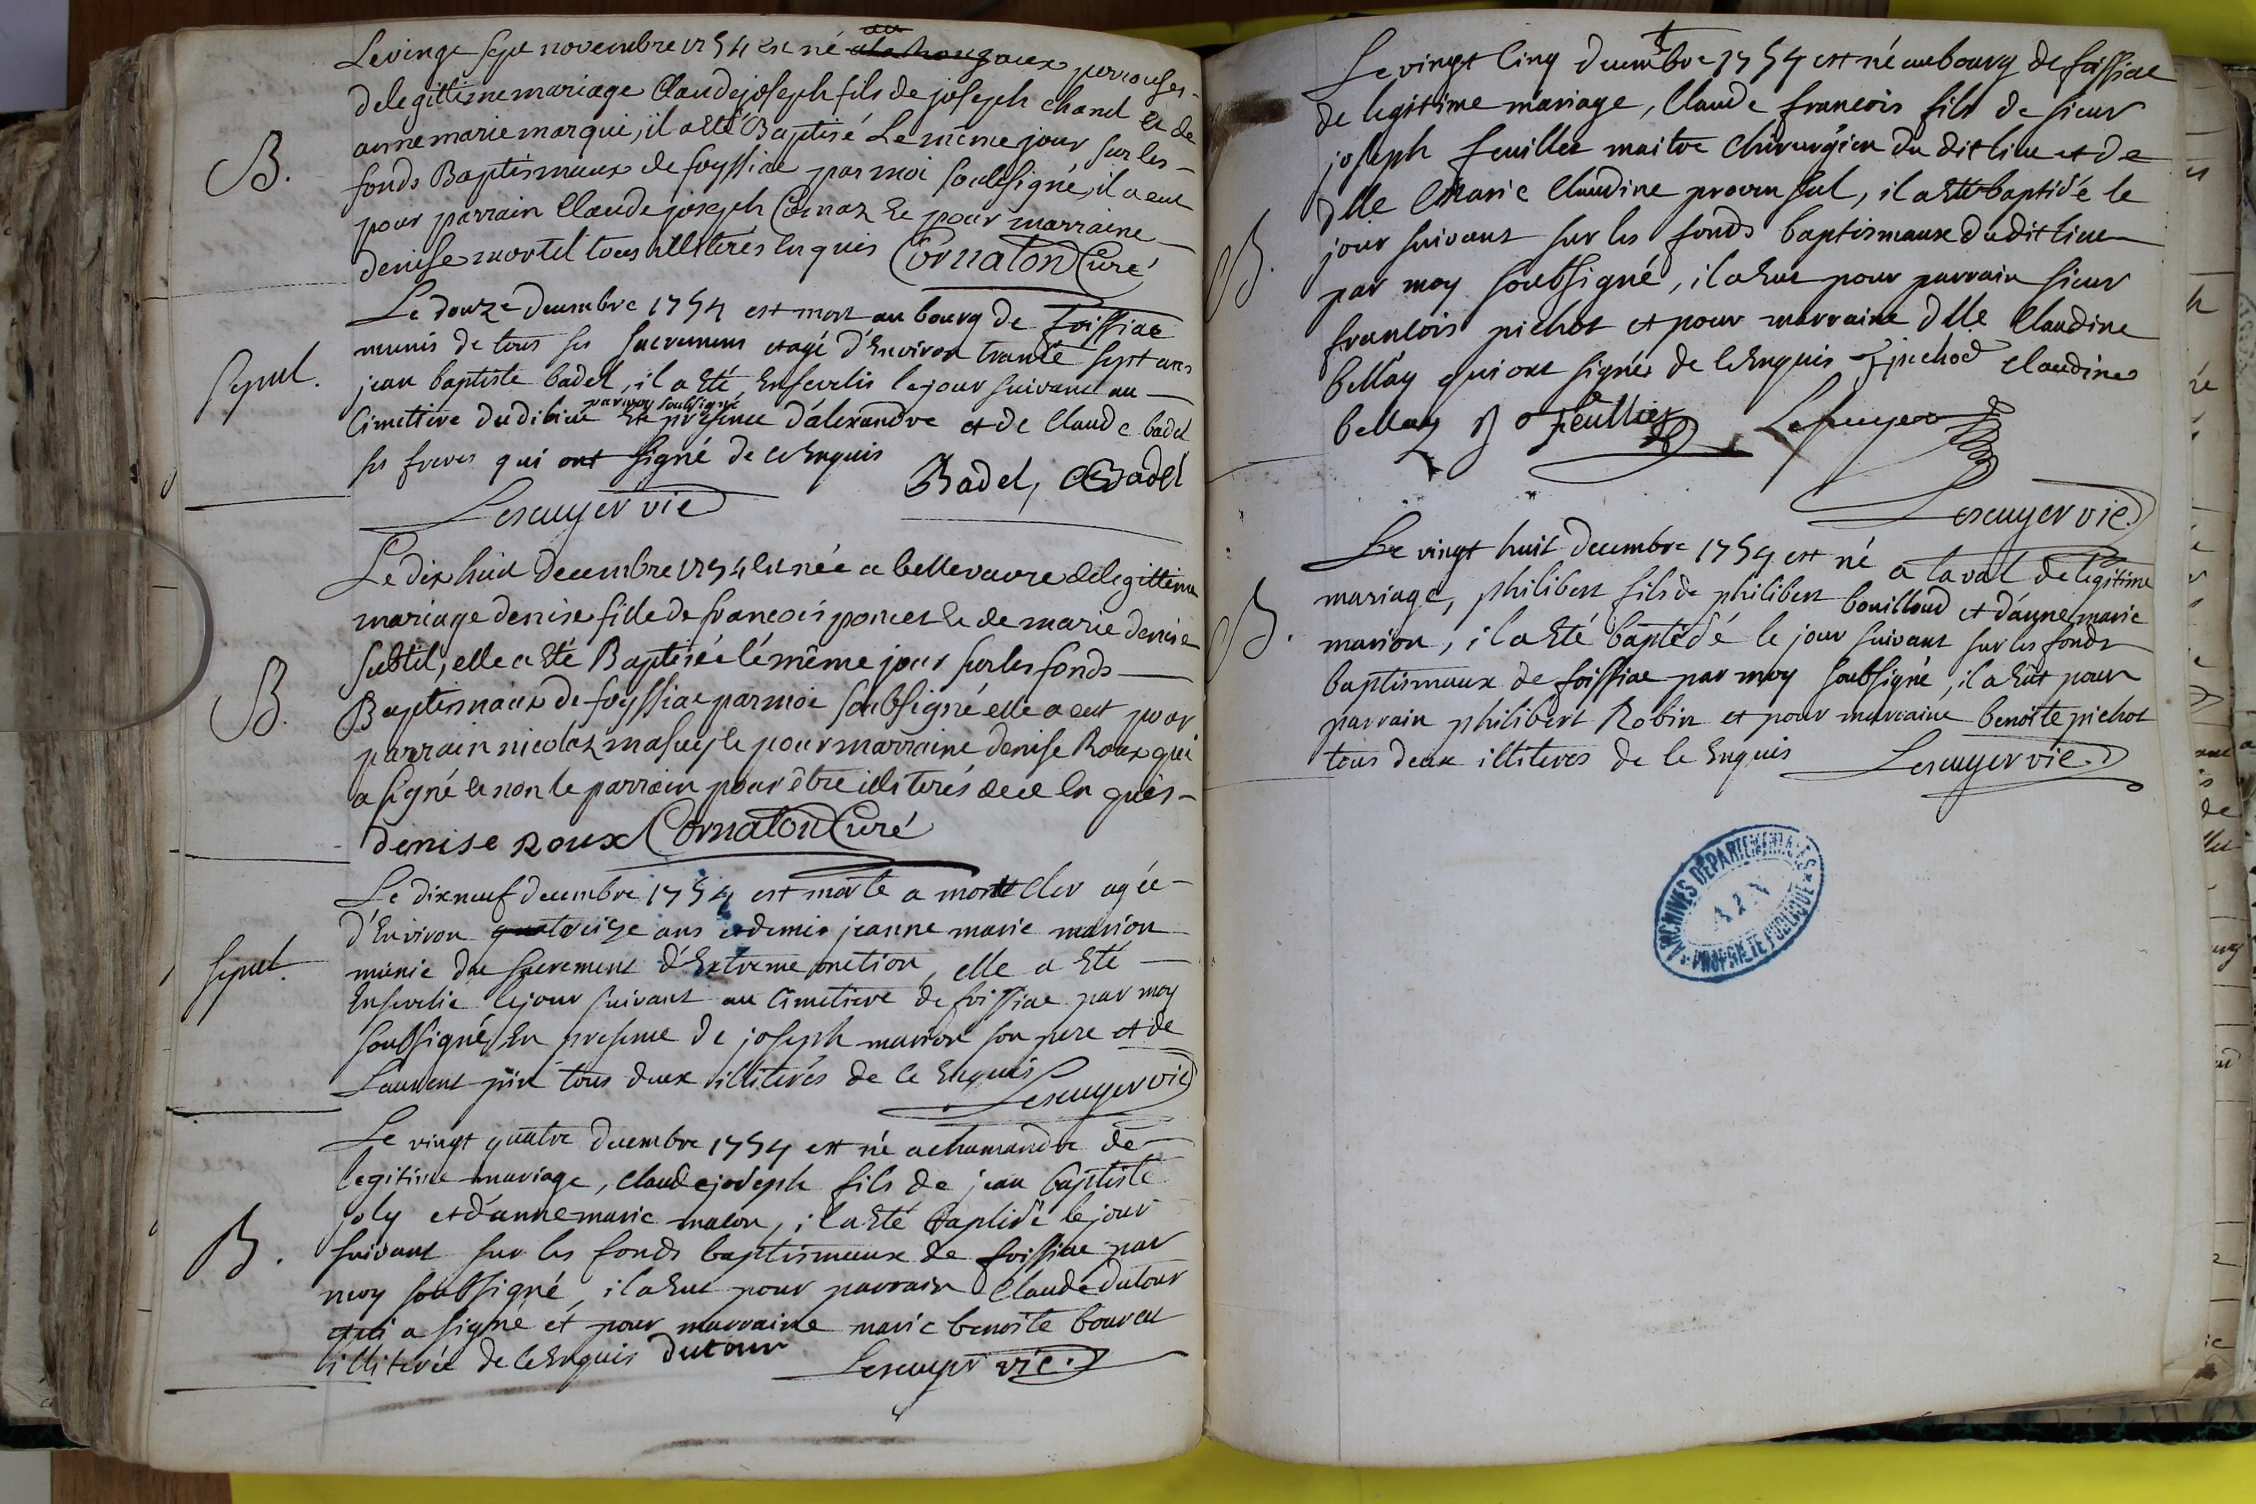 Le vingt sept novembre 1754 est né aux perrouses
de legittime mariage Claude joseph fils de joseph Chanel et de
anne marie marqui, il a eté Baptisé Le même jour sur les
B.
fonds Baptismaux de foyssiac par moi soussigné, il a eut
pour parrain Claude joseph Cornaz et pour marraine
denise mortel tous illiterés Enquis Cornaton Curé
Le douze decembre 1754 est mort au bourg de foissiac
munis de tous ses sacremens et agé d'Environ trante sept ans
Sepul.
jean baptiste badel, il a Eté Ensevelis le jour suivant au
par moy soubsigné
Cimetiere dudit lieu En presence d'alexandre et de Claude badel
ses freres qui ont signé de ce Enquis
Badel, CBadel
Lescuyer vic
Le dix huit decembre 1754 est née a bellevavre de legittime
mariage denise fille de francois poncet et de marie denise
subtil, elle a eté Baptisée lé même jour sur les fonds
B.
Baptismaux de foyssiac par moi soubsigné elle a eut pour
parrain nicolas masuy et pour marraine denise Roux qui
a signé et non le parrain pour être illiterés de ce Enquis
denise Roux Cornaton Curé
Le dix neuf decembre 1754 est morte a mont cler agée
d'Environ treize ans et demie jeanne marie marion
Sepul.
munie du sacrement d'Extreme onction, elle a Eté
Ensevelie le jour suivant au Cimetiere de foissiac par moy
soubsigné En presence de joseph marion son pere et de
Laurent tous deux illiterés de ce Enquis Lescuyer vic
Le vingt quatre decembre 1754 est né a chamandre de
legitime mariage, Claude joseph fils de jean baptiste
joly et d'anne marie maton, il a Eté baptisé le jour
B.
suivant sur les fonds baptismaux de foissiac par
moy soubsigné, il a Eut pour parrain Claude dutour
qui a signé et pour marraine marie benoite bouvet
illiterée de ce Enquis dutour Lescuyer vic.
Le vingt Cinq decembre 1754 est né au bourg de foissiac
de legitime mariage, Claude francois fils de sieur
joseph feuillet maitre Chirurgien du dit lieu et de
dlle Marie Claudine provensal, il a Eté baptisé le
B.
jour suivant sur les fonds baptismaux du dit lieu
par moy soubsigné, il a Eut pour parrain sieur
francois pichot et pour marraine dlle Claudine
bellay qui ont signés de ce Enquis F pichod Claudine
bellay J Feulliet
Lescuyer vic.
Le vingt huit decembre 1754 est né a laval de legitime
mariage, philibert fils de philibert bouilloud et d'anne marie
B.
marion, il a Eté baptisé le jour suivant sur les fonds
baptismaux de foissiac par moy soubsigné, il a Eut pour
parrain philibert Robin et pour marraine benoite pichot
tous deux illiteres de ce Enquis Lescuyer vic.
ARCHIVES DÉPARTEMENTALES
AIN
PROPRIÉTÉ PUBLIQUE